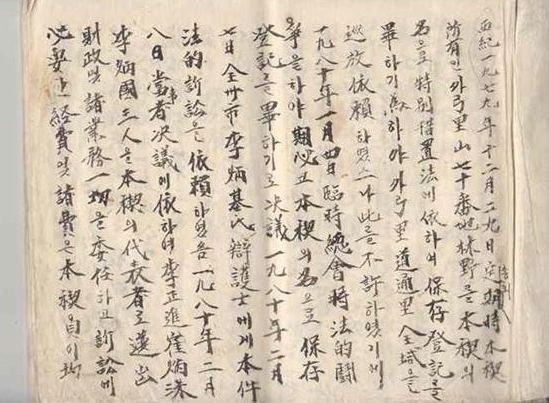 西紀一九七九年十二月二九日定期總會時本楔
所有인外弓里山七十番地林野를本楔의
名으로特別措置法에依하여保存登記를
畢하기爲하야外弓里道通里全域을
巡放依賴하였으나此를不許하였기에
一九八十年一月四日臨時總會時法的鬪
爭을하야期必고本楔의名으로保存
登記를畢하기로決議一九八十年二月
七日全州市李炳基氏辯護士에게本件
法的訴訟을依賴하였음一九八十年二月
八日當事者決議에依하여李正進崔炳洙
李炳國三人을本楔의代表者로選出
財政및諸業務一切을委任하고訴訟에
必要한経費및諸費은本楔員이